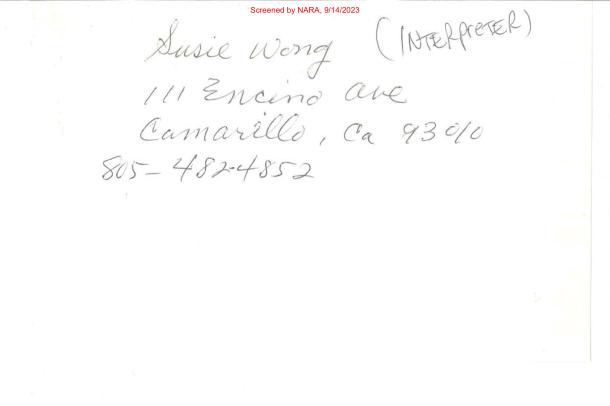 Screened by NARA, 9/14/2023
Susie Wong (INTERPRETER)
111 Encino Ave
Camarillo, Ca 93010
805-482-4852